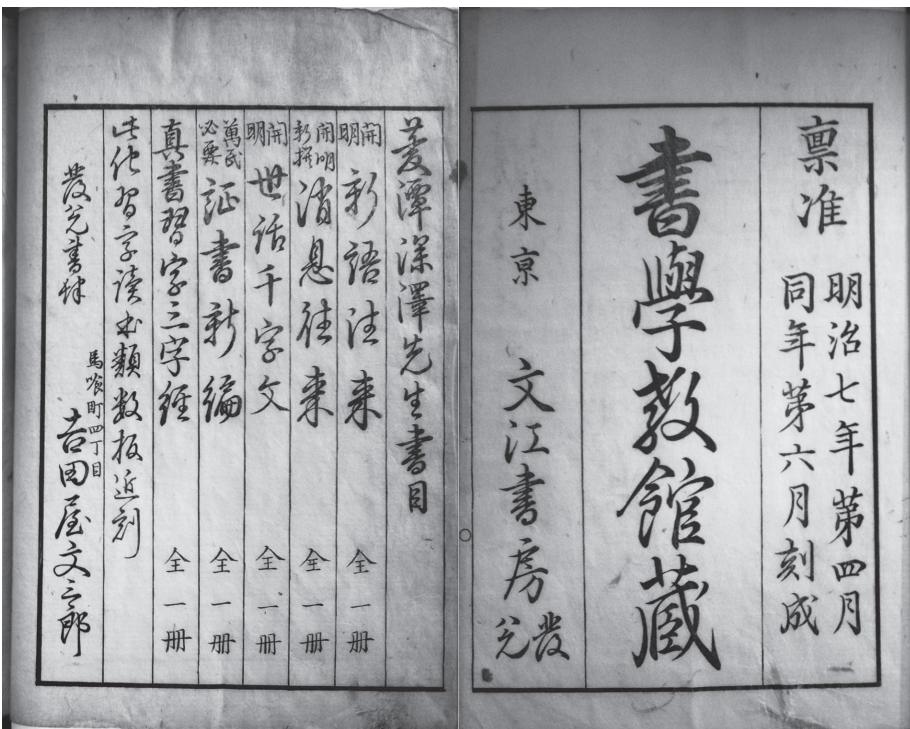 稟准
明治七年第四月
同年第六月刻成
書學教館蔵
東京 文江書房 發兌
菱潭深澤先生書目
開明 新語往来 全一册
開明新撰 消息往来 全一册
開明 世話千字文 全一册
萬民必要 証書新編 全一册
真書習字三字經 全一册
此他習字读本類数板近刻
發兌書肆 馬喰町四丁目 吉田屋文三郎